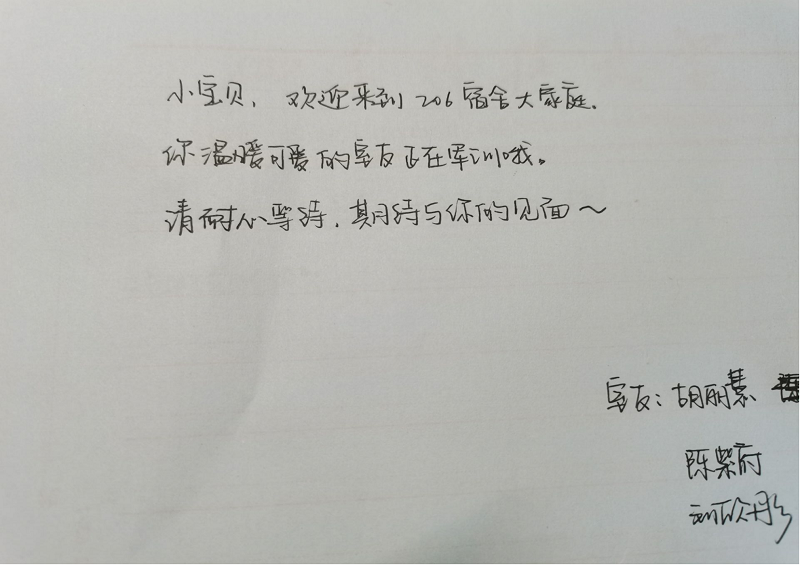 小宝贝，欢迎来到206宿舍大家庭.
你温暖可爱的室友正在军训哦。
请耐心等待，期待与你的见面～
室友：胡丽慕
陈紫府
刘欣彤